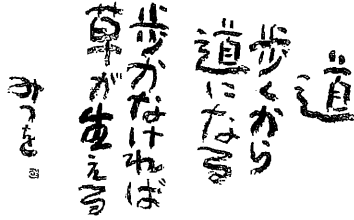 道
歩くから
道になる
歩かなければ
草が生える
みつを